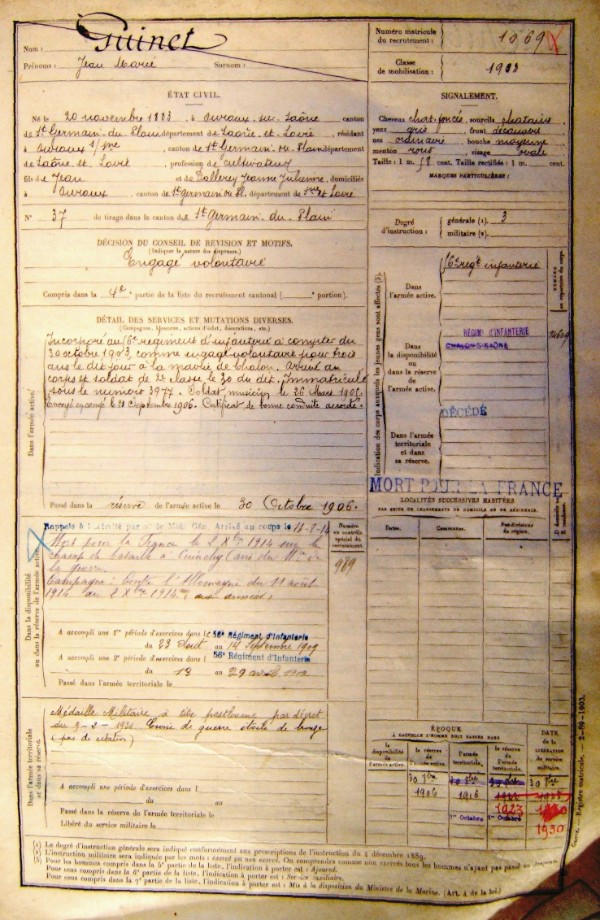 Nom : Guinet
Prénoms : Jean Marie Surnom :
Numéro matricule du recrutement : 1069
Classe de mobilisation : 1903
ÉTAT CIVIL.
Né le 20 novembre 1883, à Ouroux-sur-Saône, canton
de St Germain-du-Plain, département de Saône-et-Loire, résidant
à Ouroux s/Sne, canton de St Germain-du-Plain, département
de Saône et Loire, profession de cultivateur
fils de Jean et de Jeanne Julienne, domiciliés
à Ouroux, canton de St Germain du Pl., département de Sne et Loire
N° 37 de tirage dans le canton de St Germain-du-Plain
SIGNALEMENT.
Cheveux chat. foncés, sourcils chatains
yeux gris, front découvert
nez ordinaire, bouche moyenne
menton rond, visage ovale
Taille : 1 m. cent. Taille rectifiée : 1 m. cent.
MARQUES PARTICULIÈRES :
Degré d'instruction : générale (1). 3
militaire (2).
DÉCISION DU CONSEIL DE RÉVISION ET MOTIFS.
(Indiquer la nature des dispenses.)
Engagé volontaire
Compris dans la 4e partie de la liste du recrutement cantonal ( portion).
DÉTAIL DES SERVICES ET MUTATIONS DIVERSES.
(Campagnes, blessures, actions d'éclat, décorations, etc.)
Dans l'armée active.
Incorporé au 56e régiment d'infanterie à compter du
30 octobre 1903, comme engagé volontaire pour trois
ans le dit jour à la mairie de Chalon. Arrivé au
corps et soldat de 2e classe le 30 du dit. Immatriculé
sous le numéro 3977. Soldat musicien le 26 Mars 1905.
Envoyé en congé le Septembre 1906. Certificat de bonne conduite accordé.
Passé dans la réserve de l'armée active le 30 Octobre 1906.
Indication des corps auxquels les jeunes gens sont affectés (3).
Dans l'armée active.
56e regt infanterie
NUMÉRO
Dans la disponibilité ou dans la réserve de l'armée active.
RÉGIMt D'INFANTERIE
CHALON-S-SAÔNE
DÉCÉDÉ
Dans l'armée territoriale et dans sa réserve.
MORT POUR LA FRANCE
LOCALITÉS SUCCESSIVES HABITÉES
PAR SUITE DE CHANGEMENTS DE DOMICILE OU DE RÉSIDENCE.
Dates. Communes. Subdivisions de région.
Dans la disponibilité ou dans la réserve de l'armée active.
Rappelé à l'activité par de Mob. Gén. Arrivé au corps le
Numéro au contrôle spécial du recrutement.
989
Mort pour la France le 2 Xbre 1914 sur le
champ de bataille à Cuinchy (avis du Mre de
la guerre
Campagne : contre l'Allemagne du 11 août
1914 au 2 Xbre 1914
A accompli une 1re période d'exercices dans l 56e Régiment d'Infanterie
du 23 Août au 14 Septembre 1909
A accompli une 2e période d'exercices dans l 56e Régiment d'Infanterie
du 13 au 29
Passé dans l'armée territoriale le
Dans l'armée territoriale et dans sa réserve.
Médaille Militaire à titre posthume par décret
du Croix de guerre étoile de bronze
(pas de citation)
A accompli une période d'exercices dans l
du au
Passé dans la réserve de l'armée territoriale le
Libéré du service militaire le
ÉPOQUE
À LAQUELLE L'HOMME DOIT PASSER DANS
la disponibilité de l'armée active. la réserve de l'armée active. l'armée territoriale. la réserve de l'armée territoriale. DATE DE LA LIBÉRATION DU SERVICE MILITAIRE.
1906 1916
1er Octobre 1923 1er Octobre
1930
(1) Le degré d'instruction générale sera indiqué conformément aux prescriptions de l'instruction du 4 décembre 1889.
(2) L'instruction militaire sera indiquée par les mots : exercé ou non exercé.
(3) Pour les hommes compris dans la 5e partie de la liste, l'indication à porter est : Ajourné.
Pour ceux compris dans la 6e partie de la liste, l'indication à porter est : Service auxiliaire.
Pour ceux compris dans la 7e partie de la liste, l'indication à porter est : Mis à la disposition du Ministre de la Marine. (Art. 4 de la loi.)